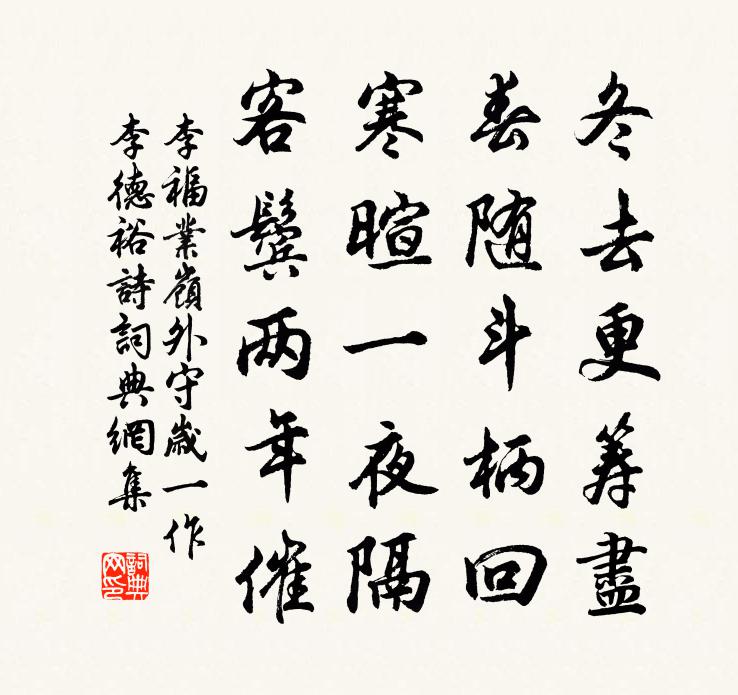 冬去更筹盡
春随斗柄回
寒暄一夜隔
客鬓两年催
李福業嶺外守歲一作
李德裕詩詞典網集
詞典网印